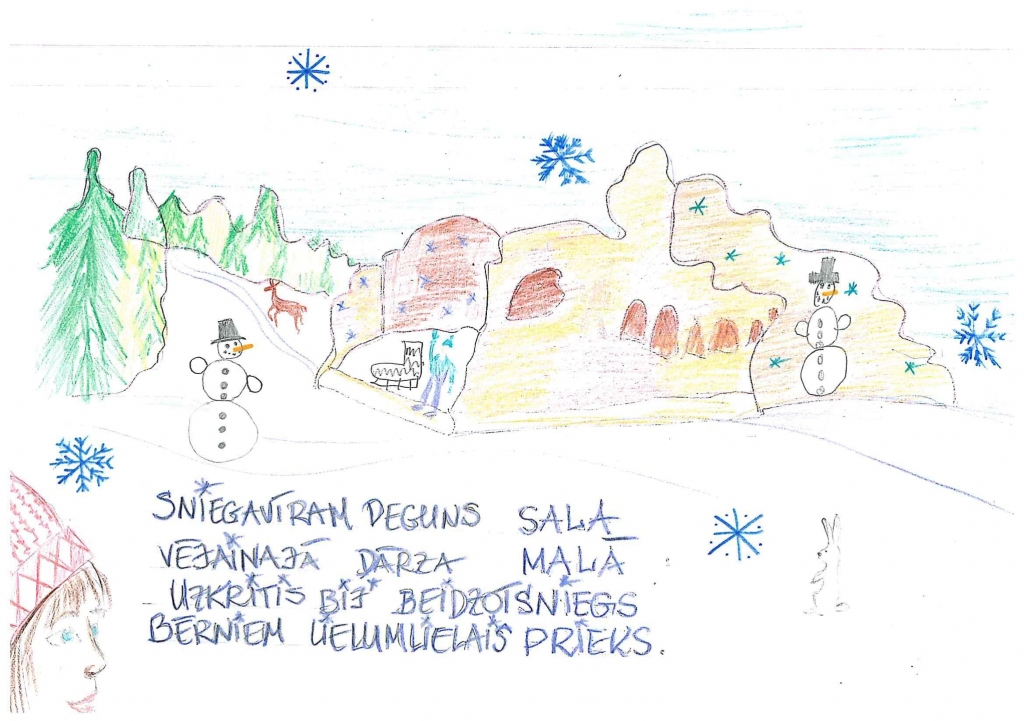 SNIEGAVĪRAM DEGUNS SALĀ
VĒJAINAJĀ DĀRZA MALĀ
UZKRITIS BIJ BEIDZOT SNIEGS
BĒRNIEM LIELUMLIELAIS PRIEKS.